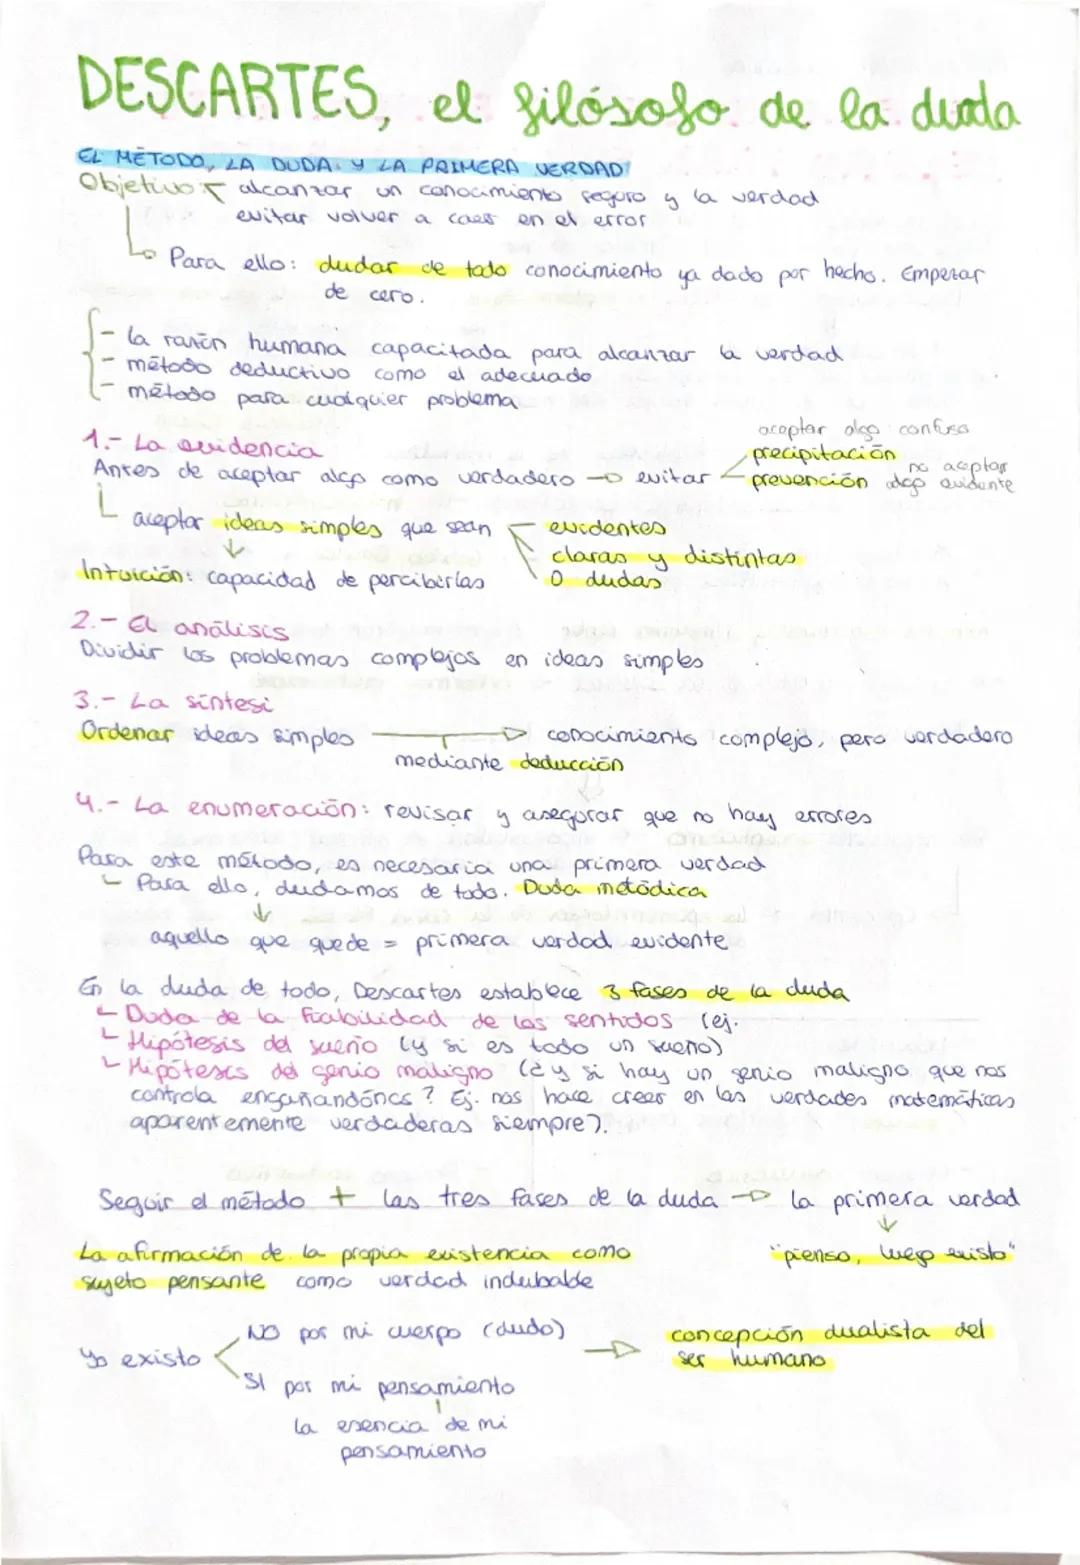 DESCARTES, el filósofo de la duda
EL MÉTODO, LA DUDA Y LA PRIMERA VERDAD
Objetivo: alcanzar un conocimiento seguro y la verdad
evitar volver a caer en el error
Para ello: dudar de todo conocimiento ya dado por hecho. Empezar
de cero.
- la razón humana capacitada para alcanzar la verdad
- método deductivo como el adecuado
- método para cualquier problema
1.- La evidencia
aceptar algo confuso
Antes de aceptar algo como verdadero → evitar
precipitación
prevención
no aceptar
algo evidente
aceptar ideas simples que sean
evidentes
claras y distintas
0 dudas
Intuición: capacidad de percibirlas
2.- El análisis
Dividir los problemas complejos en ideas simples
3.- La síntesi
Ordenar ideas simples → conocimiento complejo, pero verdadero
mediante deducción
4.- La enumeración: revisar y asegurar que no hay errores
Para este método, es necesaria una primera verdad
Para ello, dudamos de todo. Duda metódica
aquello que quede = primera verdad evidente
En la duda de todo, Descartes establece 3 fases de la duda
Duda de la fiabilidad de los sentidos (ej.
Hipótesis del sueño (y si es todo un sueño)
Hipótesis del genio maligno (¿y si hay un genio maligno que nos
controla engañándonos? Ej. nos hace creer en las verdades matemáticas
aparentemente verdaderas siempre).
Seguir el método + las tres fases de la duda → la primera verdad
"pienso, luego existo"
La afirmación de la propia existencia como
sujeto pensante como verdad indubable
Yo existo
NO por mi cuerpo (dudo)
SI por mi pensamiento
la esencia de mi
pensamiento
→ concepción dualista del
ser humano